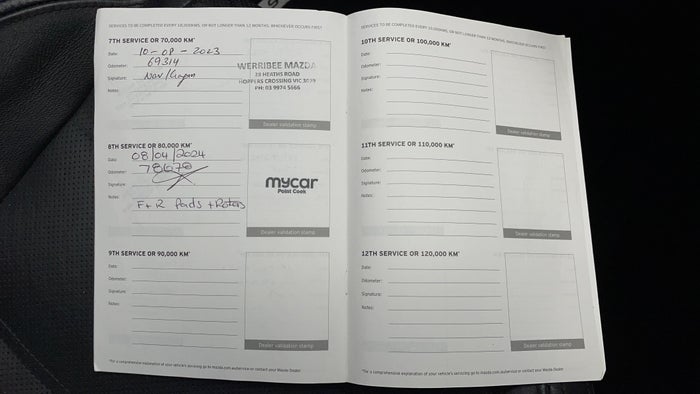 SERVICES TO BE COMPLETED EVERY 10,000KMS, OR NOT LONGER THAN 12 MONTHS, WHICHEVER OCCURS FIRST
7TH SERVICE OR 70,000 KM*
Date: 10-08-2023
Odometer: 69314
Signature:
Notes:
WERRIBEE MAZDA
28 HEATHS ROAD
HOPPERS CROSSING VIC 3029
PH: 03 9974 5666
Dealer validation stamp
8TH SERVICE OR 80,000 KM*
Date: 08/04/2024
Odometer: 78678
Signature:
Notes: F+R Pads + Rotors
mycar
Point Cook
Dealer validation stamp
9TH SERVICE OR 90,000 KM*
Date:
Odometer:
Signature:
Notes:
Dealer validation stamp
*For a comprehensive explanation of your vehicle's servicing go to mazda.com.au/service or contact your Mazda Dealer
SERVICES TO BE COMPLETED EVERY 10,000KMS, OR NOT LONGER THAN 12 MONTHS, WHICHEVER OCCURS FIRST
10TH SERVICE OR 100,000 KM*
Date:
Odometer:
Signature:
Notes:
Dealer validation stamp
11TH SERVICE OR 110,000 KM*
Date:
Odometer:
Signature:
Notes:
Dealer validation stamp
12TH SERVICE OR 120,000 KM*
Date:
Odometer:
Signature:
Notes:
Dealer validation stamp
*For a comprehensive explanation of your vehicle's servicing go to mazda.com.au/service or contact your Mazda Dealer